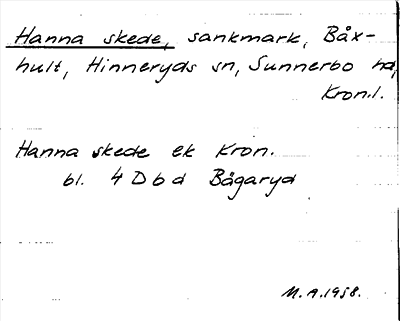 Hanna skede, sankmark, Båx-
hult, Hinneryds sn, Sunnerbo hd,
Kron.l.
Hanna skede ek Kron.
bl. 4 D b d Bågaryd
M.A.1958.